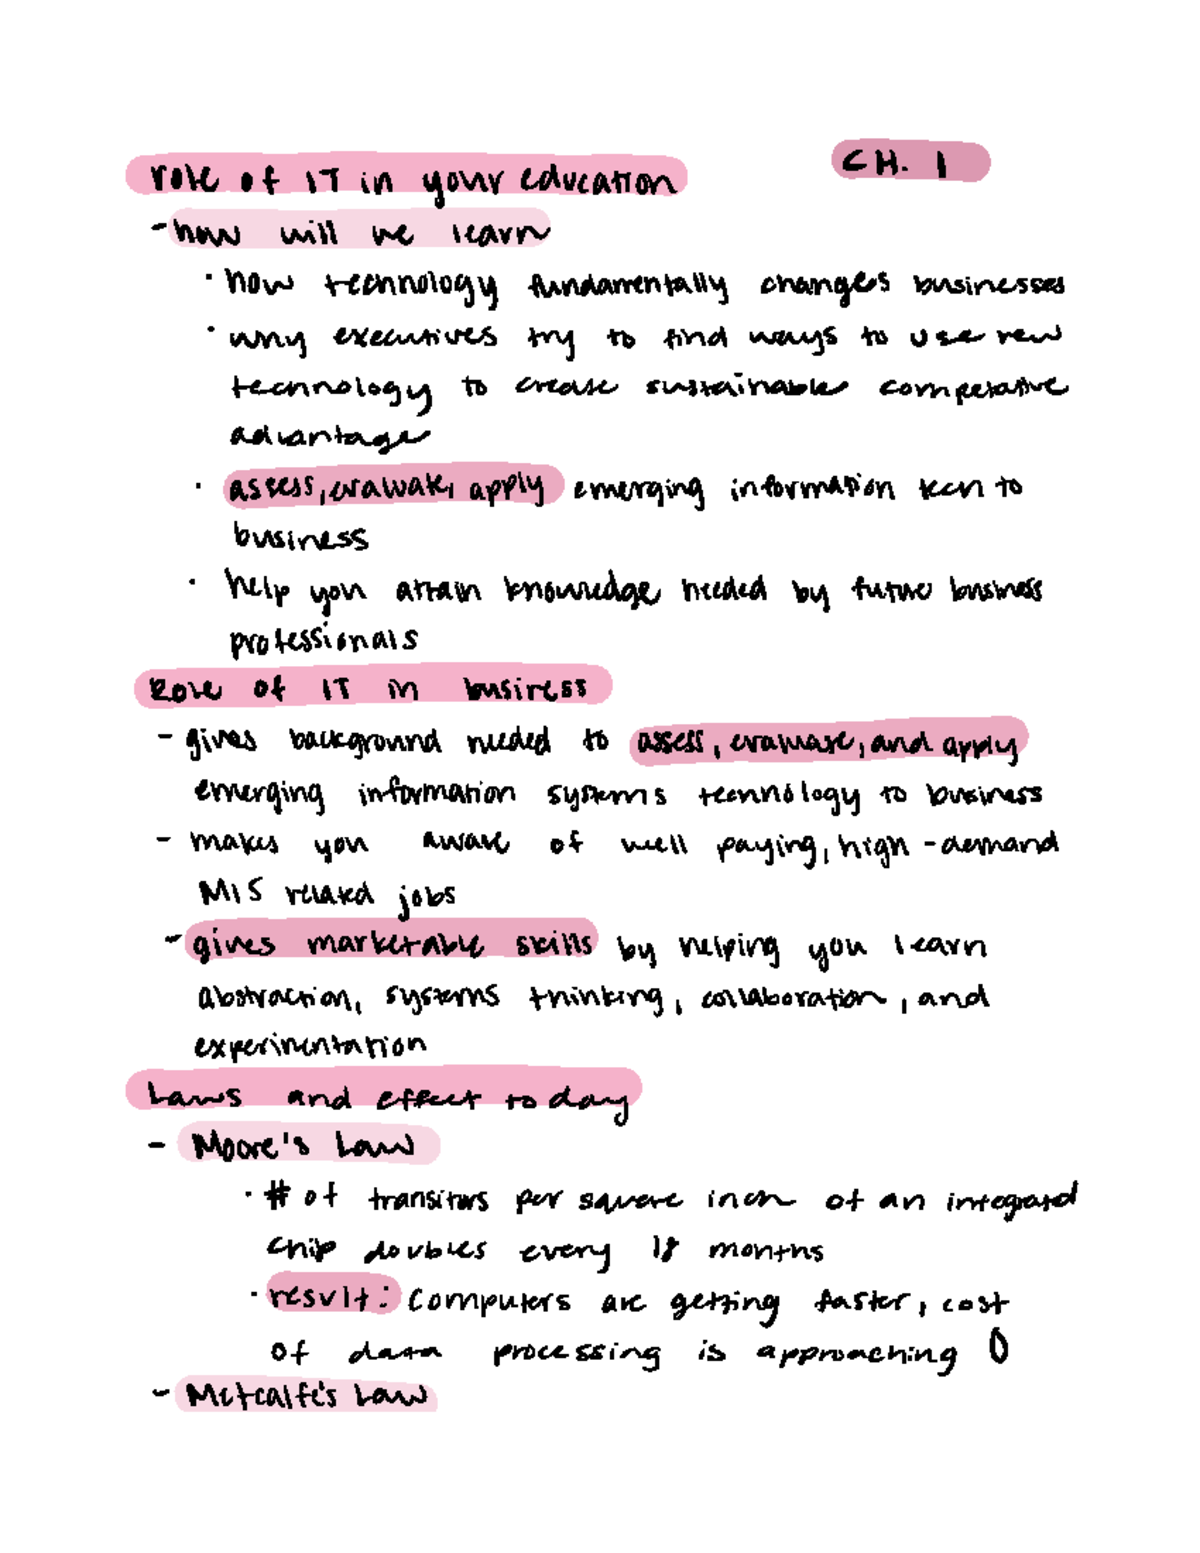 CH. 1
role of IT in your education
- how will we learn
· how technology fundamentally changes businesses
· why executives try to find ways to use new
technology to create sustainable competative
advantage
· assess, evaluate, apply emerging information tech to
business
· help you attain knowledge needed by future business
professionals
Role of IT in business
- gives background needed to assess, evaluate, and apply
emerging information systems technology to business
- makes you aware of well paying, high-demand
MIS related jobs
- gives marketable skills by helping you learn
abstraction, systems thinking, collaboration, and
experimentation
Laws and effect today
- Moore's Law
· # of transitors per square inch of an integrated
chip doubles every 18 months
· result: computers are getting faster, cost
of data processing is approaching 0
- Metcalfe's Law